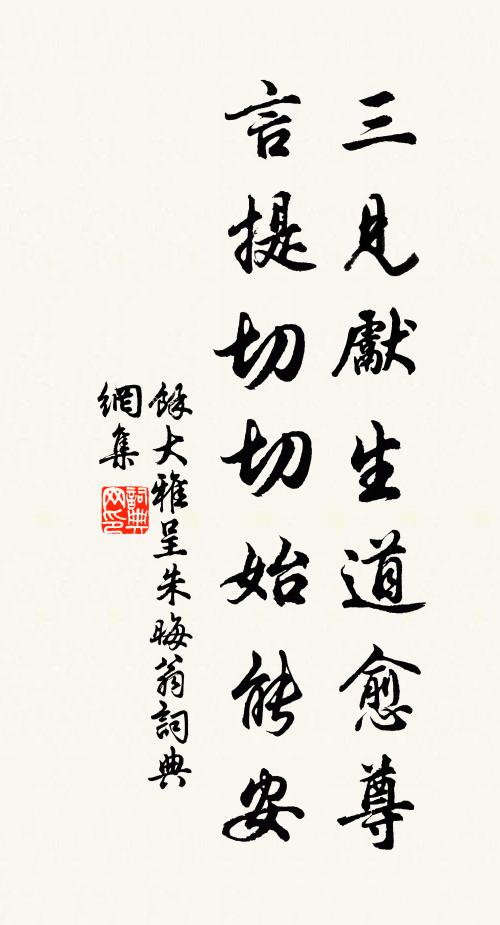 三見獻生道愈尊
言提切切始能安
餘大雅呈朱晦翁詞典
網集
詞典
网印